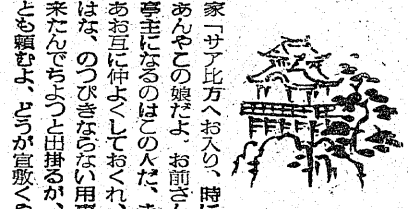 家「サア比方へお入り、時に
あんやこの娘だよ、お前さん
亭主になるのはこの人だ、ま
あお互に仲よくしておくれ、
はな、のつぴきならない用事
来たんでちよつと出掛るが、
とも頼むよ、どうが宜敷くの